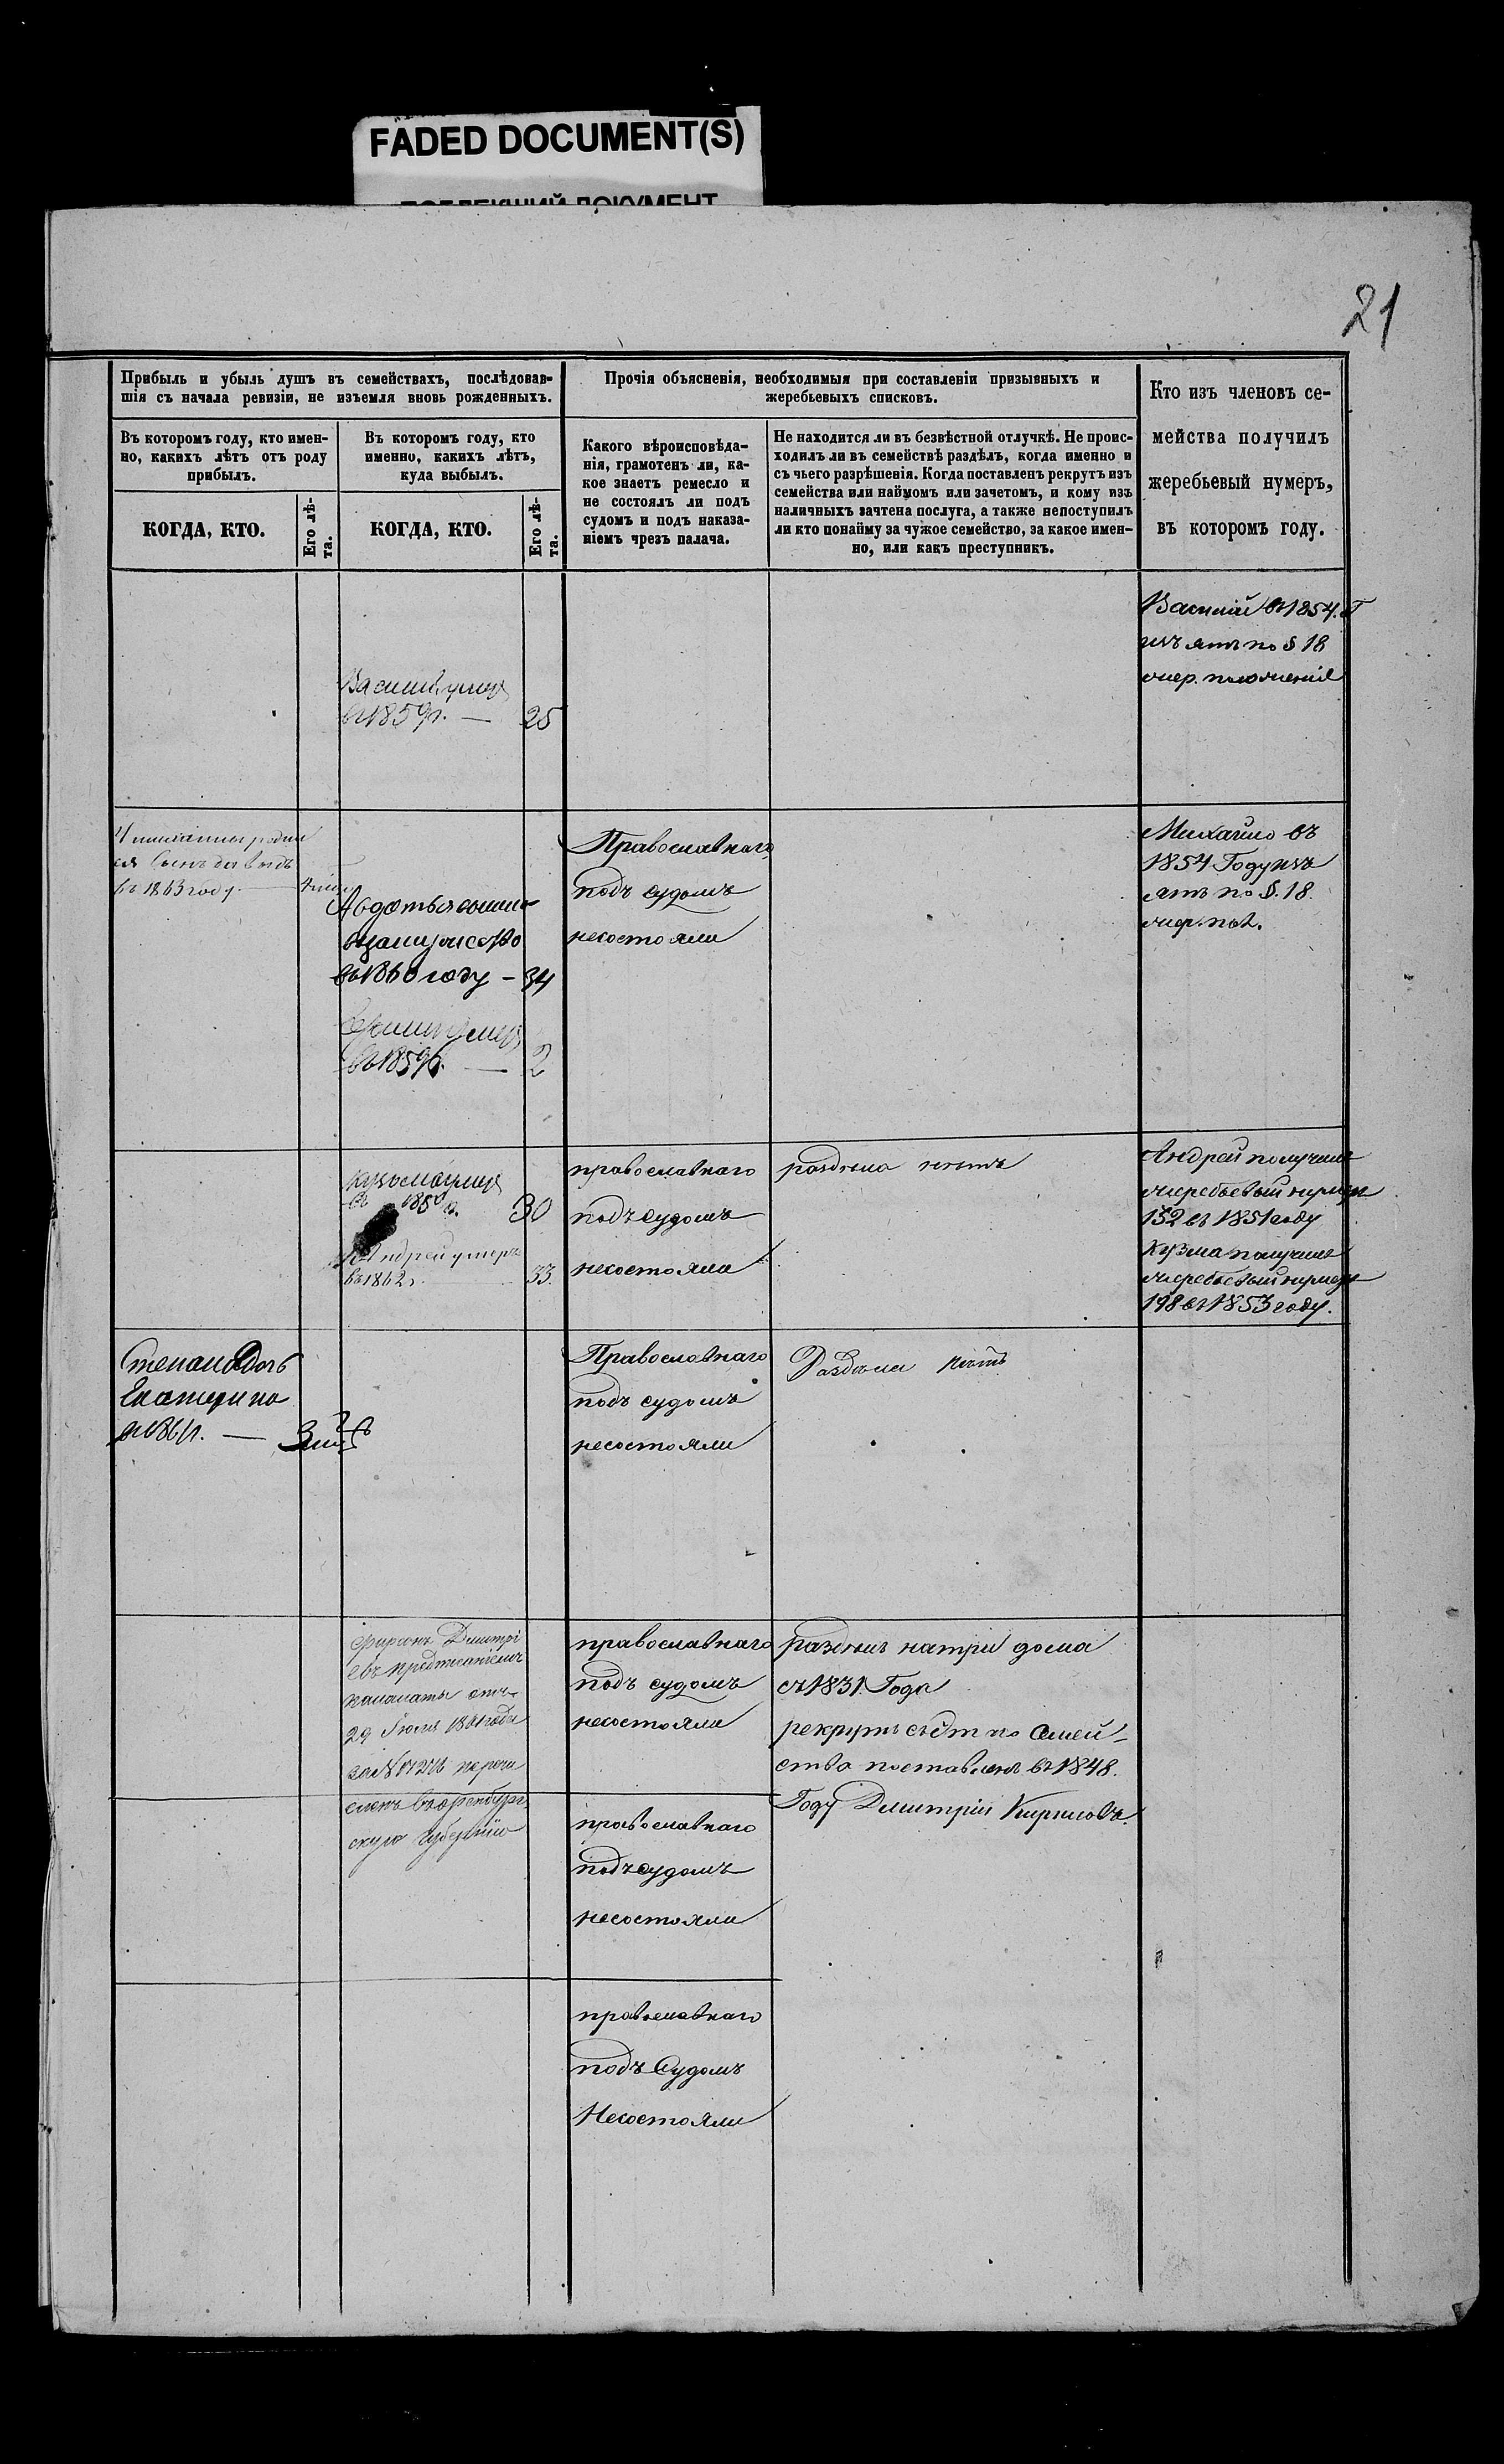 FADED DOCUMENT(S)
21
Прибыль и убыль душъ въ семействахъ, послѣдовав-
шія съ начала ревизіи, не изъемля вновь рожденныхъ.
Въ которомъ году, кто имен-
но, какихъ лѣтъ отъ роду
прибылъ.
КОГДА, КТО.
Его лѣ-
та.
Въ которомъ году, кто
именно, какихъ лѣтъ,
куда выбылъ.
КОГДА, КТО.
Его лѣ-
та.
Прочія объясненія, необходимыя при составленіи призывныхъ и
жеребьевыхъ списковъ.
Какого вѣроисповѣда-
нія, грамотенъ ли, ка-
кое знаетъ ремесло и
не состоялъ ли подъ
судомъ и подъ наказа-
ніемъ чрезъ палача.
Не находится ли въ безвѣстной отлучкѣ. Не проис-
ходилъ ли въ семействѣ раздѣлъ, когда именно и
съ чьего разрѣшенія. Когда поставленъ рекрутъ изъ
семейства или наймомъ или зачетомъ, и кому изъ
наличныхъ зачтена послуга, а также непоступилъ
ли кто понайму за чужое семейство, за какое имен-
но, или какъ преступникъ.
Кто изъ членовъ се-
мейства получилъ
жеребьевый нумеръ,
въ которомъ году.
Василій въ 1854. Г
изъятъ по § 18
жер. положенія
Василій умеръ
въ 1859г. — 25
родил
ся сынъ
въ 1863 году
Православнаго
подъ судомъ
несостояли
Михайло въ
1854 Году изъ
ятъ по §. 18.
жер. пол.
Авдотья
замужество
въ 1860 году – 34
умеръ
въ 1859г. — 2
Кузьма умеръ
въ 185 г. 30
Андрей умеръ
въ 1862 г. 33.
православнаго
подъ судомъ
несостояли
раздѣла нѣтъ
Андрей получилъ
жеребьевый нумеръ
132 въ 1851 году
Кузма получилъ
жеребьевый нумеръ
198 въ 1853 году.
Степана дочь
Екатерина
Православнаго
подъ судомъ
несостояли
Раздѣла нѣтъ
Дмитрі
евъ
палаты отъ
29 Іюля году
за № перечи
сленъ въ оренбург
скую губернію
православнаго
подъ судомъ
несостояли
раздѣлъ на три дома
съ 1831. Года
рекрутъ съ Семей-
ства поставленъ въ 1848.
Году Димитрій Кириловъ.
православнаго
подъ судомъ
несостояли
православнаго
подъ Судомъ
Несостояли